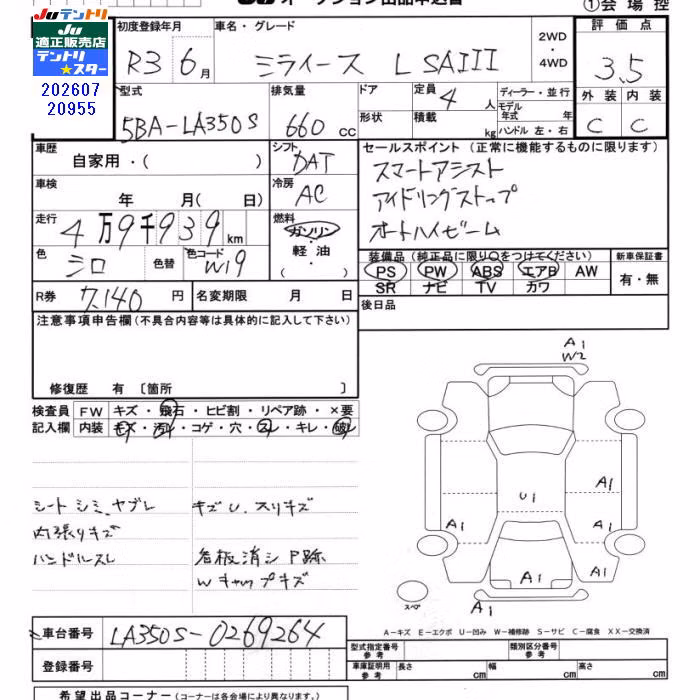 JUテントリ
JU
適正販売店
テントリ
★スター
202607
20955
オークション出品申込書
①会場控
初度登録年月
R3 6月
車名・グレード
ミライース L SAIII
2WD
・
4WD
評価点
3.5
型式
5BA-LA350S
排気量
660 cc
ドア
定員 4 人
形状
積載 kg
ディーラー・並行
モデル
年式 年
ハンドル 左・右
外装 内装
C C
車歴
自家用・( )
シフト
DAT
セールスポイント (正常に機能するものに限ります)
スマートアシスト
アイドリングストップ
オートハイビーム
車検
年 月( 日)
冷房
AC
走行
4万9千939 km
燃料
ガソリン
・
軽油
( ・ )
色
シロ
色替
色コード
W19
装備品 (純正品に限り○をつけてください)
PS PW ABS エアB AW
SR ナビ TV カワ
新車保証書
有・無
R券 7,140 円
名変期限 月 日
後日品
注意事項申告欄 (不具合内容等は具体的に記入して下さい)
修復歴 有 〔箇所 〕
検査員
記入欄
FW キズ・飛石・ヒビ割・リペア跡・×要
内装 キズ・汚れ・コゲ・穴・スレ・キレ・破れ
シート シミ、ヤブレ
内張りキズ
ハンドルスレ
キズU. スリキズ
看板消シ P跡
Wキャップキズ
A1
W2
U1
A1
A1
A1
A1
A1
A1
スペア
A－キズ E－エクボ U－凹み W－補修跡 S－サビ C－腐食 XX－交換済
車台番号 LA350S-0269264
登録番号
型式指定番号
参考
類別区分番号
参考
車庫証明用
参考
長さ cm 幅 cm 高さ cm
希望出品コーナー (コーナーは各会場により異なります。)